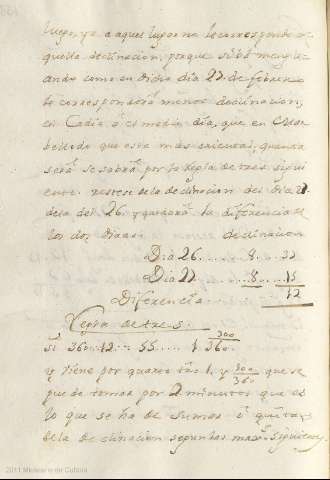 luego, ya a aquel lugar no le corresponde a-
quella declinacion, porque si bá menguan
ando como en dicho dia 27 de febrero
le corresponderá menos declinacion,
en Cadiz a el medio dia, que en
bello que esta mas oriental, quanta
será se sabrá por la Regla de tres sigui
ente. restese la declinacion del dia 27
dela del 26. y quedará la diferencia de
los dos dias. declinacion
Dia 26......8...27
Dia 27......8...15
Diferencia.......12
Regla de tres.
Si 360..12 — 55..... 1 300/360
y viene por quarto tño 1, y 300/360 que se
puede tomar por 2 minutos que es
lo que se ha de sumar o quitar
de la declinacion segun las maxs. siguientes.
2011 Ministerio de Cultura